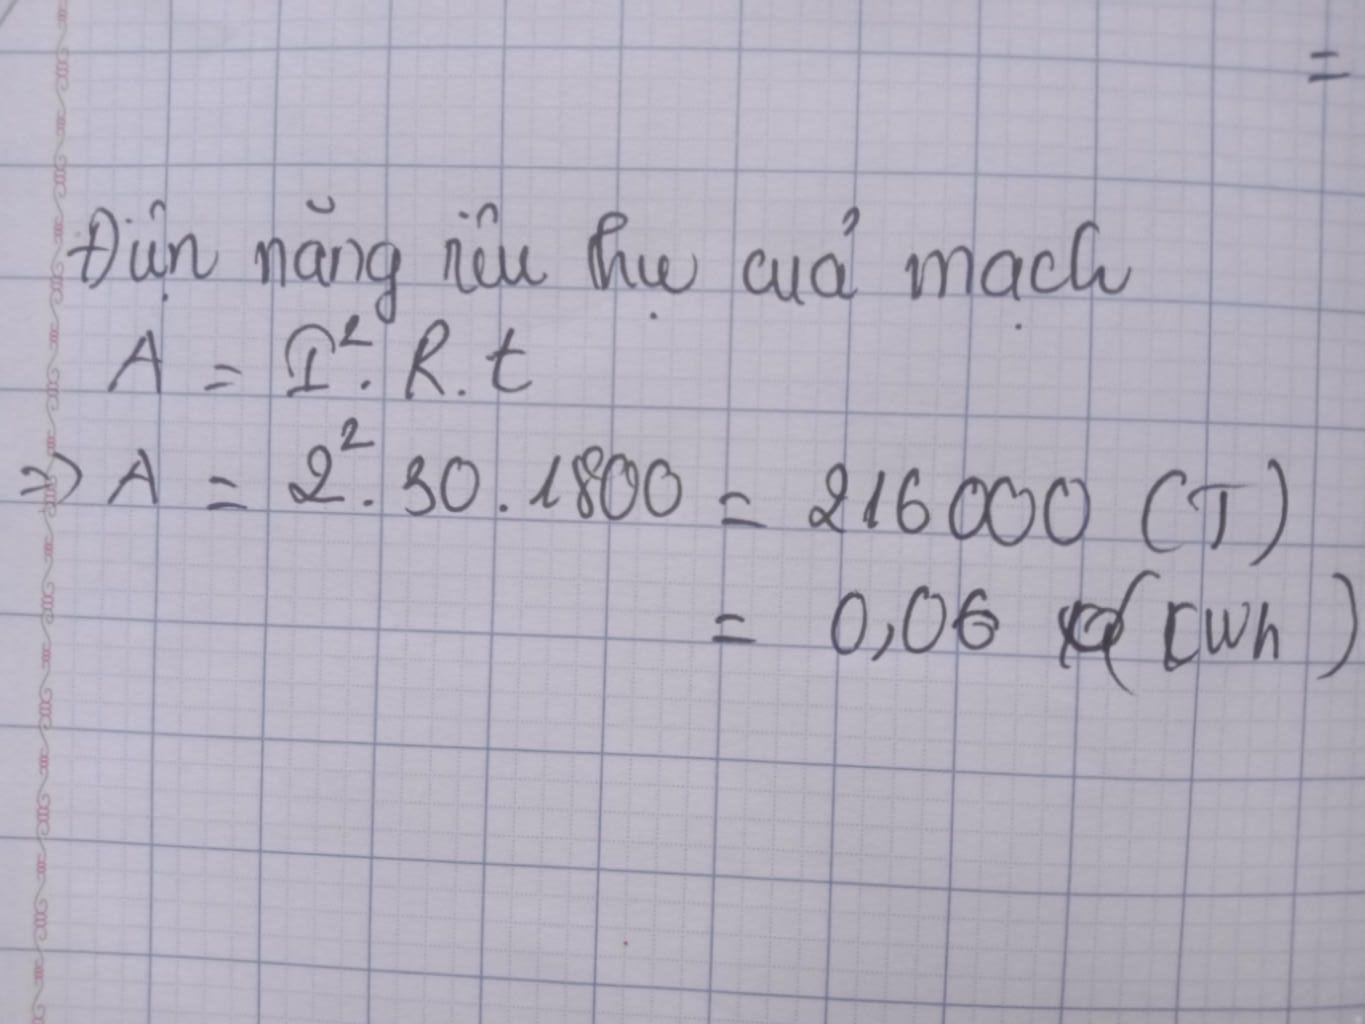 =
Điện năng tiêu thụ của mạch
A = I². R. t
=> A = 2². 30. 1800 = 216000 (J)
= 0,06 (kWh)